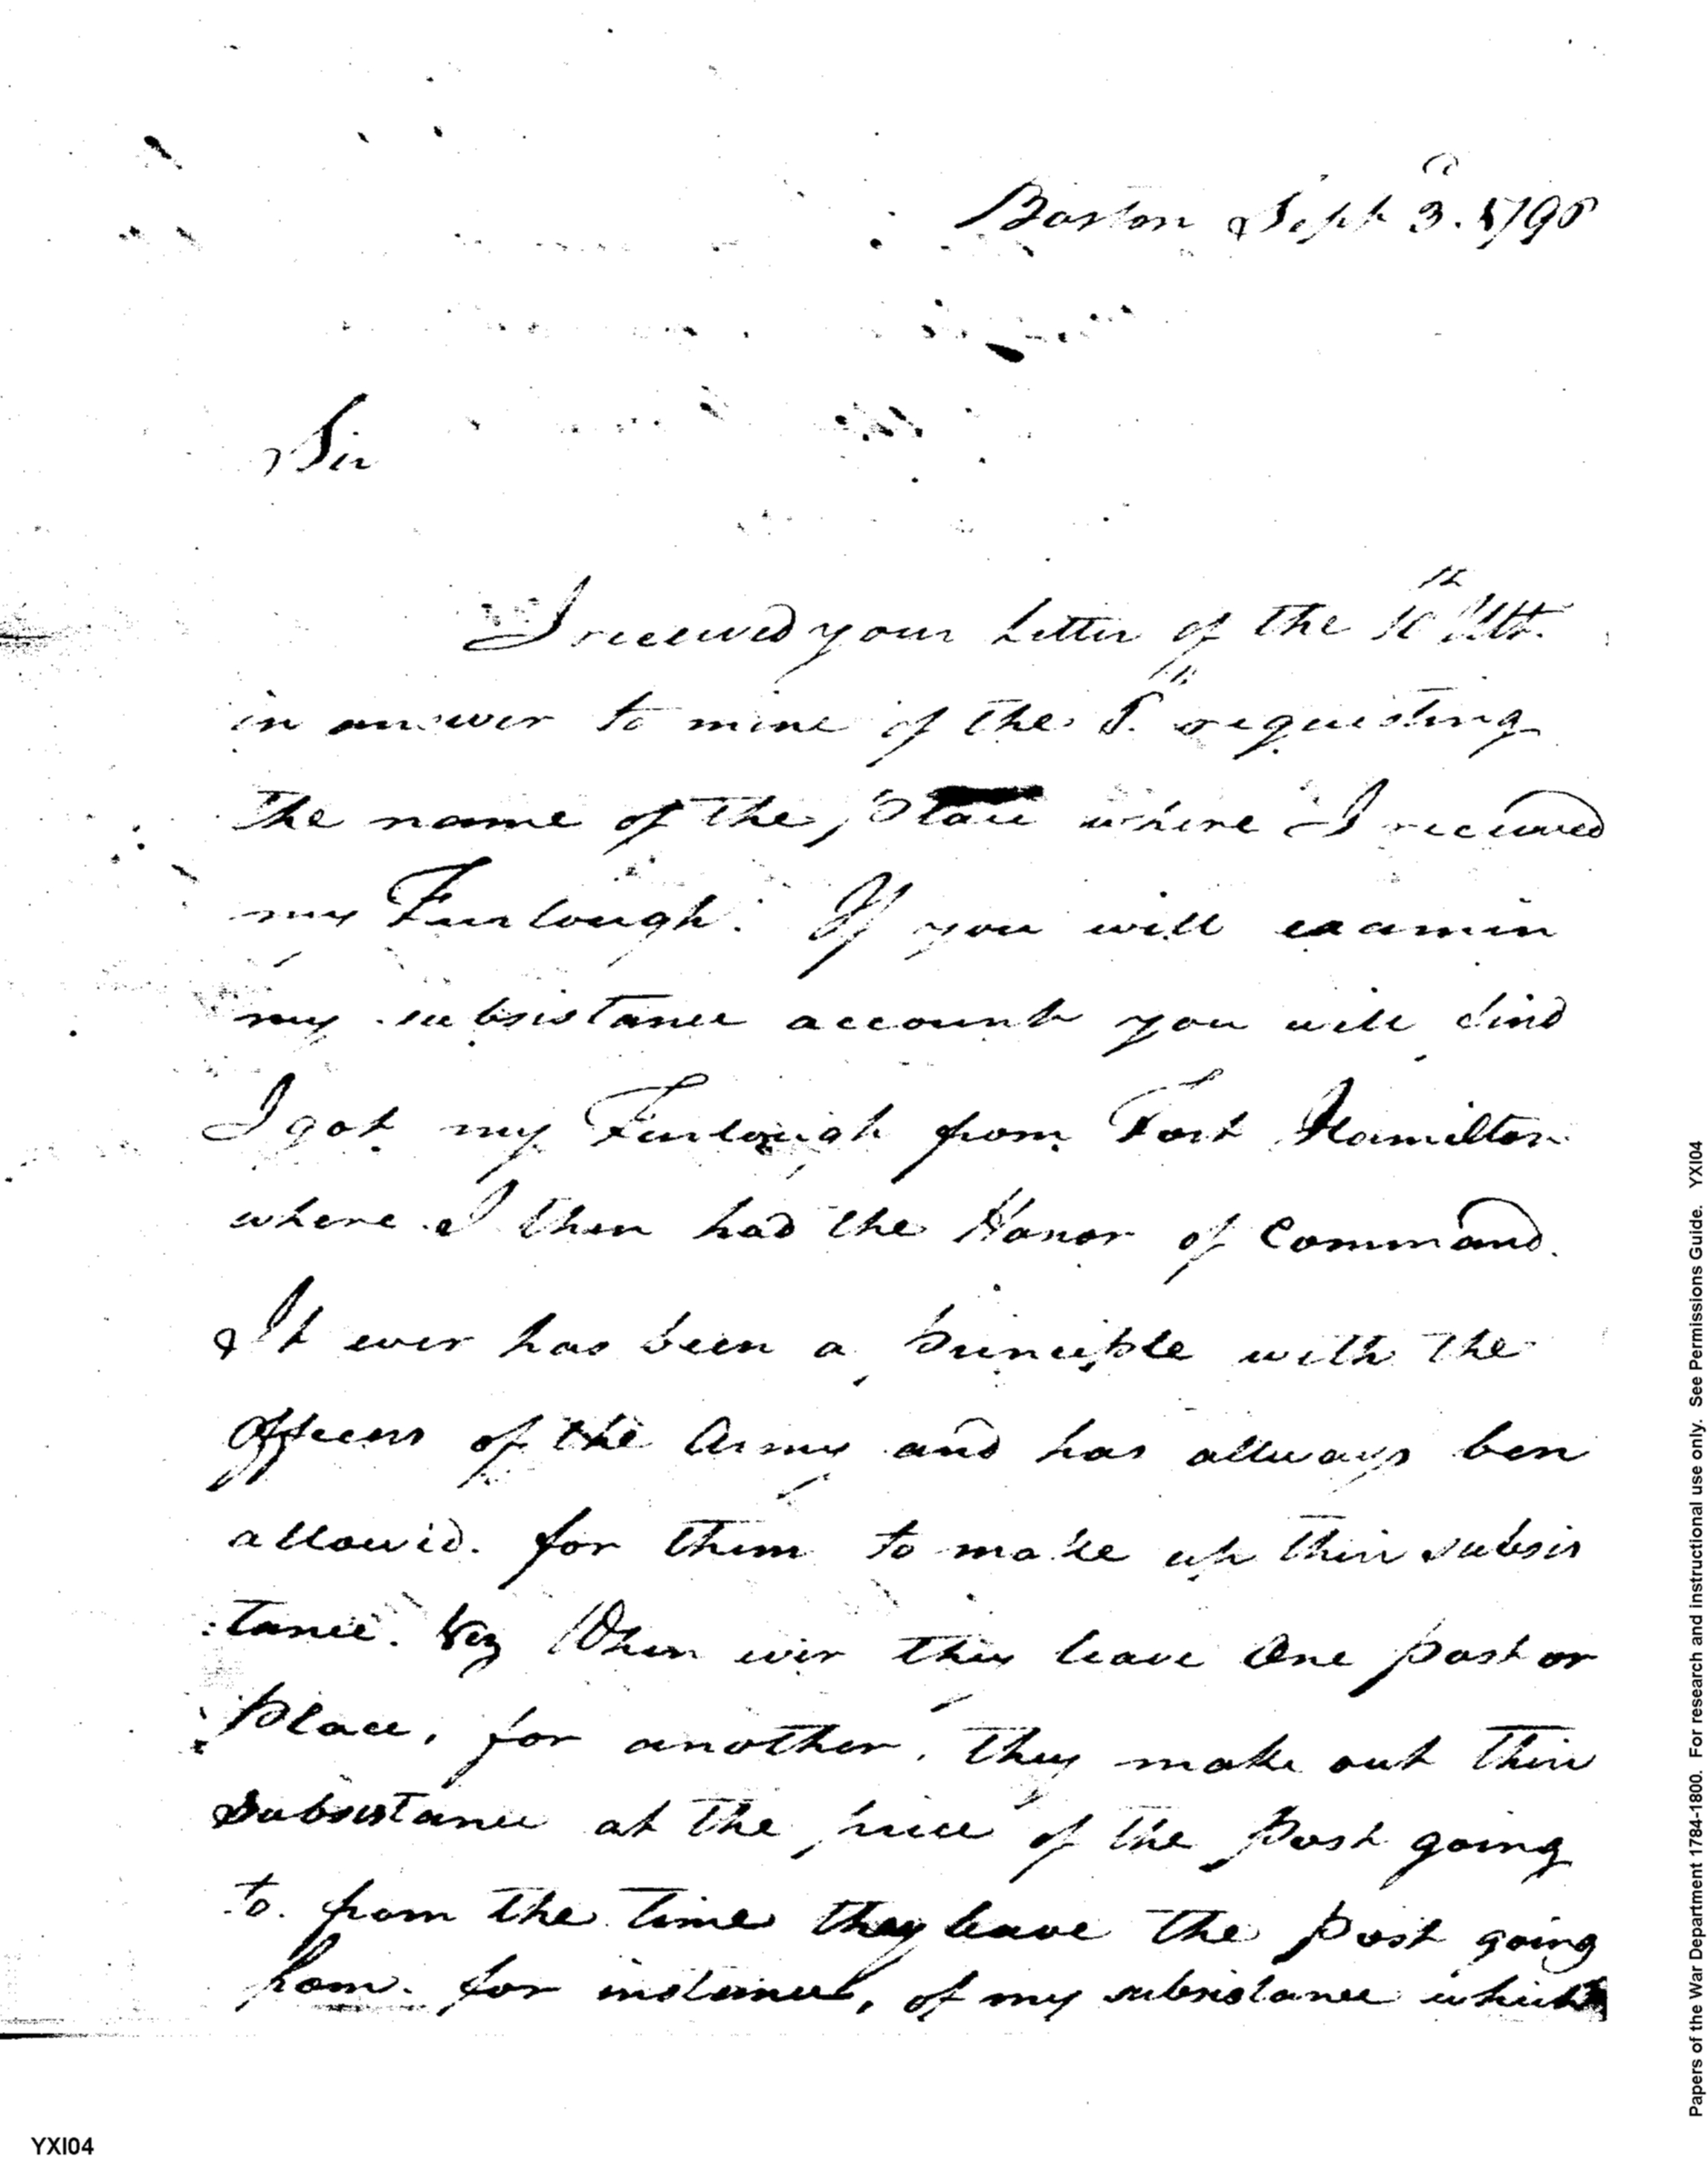 Boston Sept 3.d 1796
Sir
I received your Letter of the 10th Ult.
in answer to mine of the 5th requesting
the name of the place where I received
my Furlough. If you will examin
my subsistance account you will find
I got my Furlough from Fort Hamilton
where I then had the Honor of Command.
It ever has been a principle with the
officers of the Army and has allways ben
allowed. for them to make up their subsis
:tance. Viz When ever they leave One post or
place, for another, they make out their
Subsistance at the price of the post going
to. from the time they leave the post going
from. for instance, of my subsistance which
Papers of the War Department 1784-1800. For research and instructional use only. See Permissions Guide. YXI04
YXI04